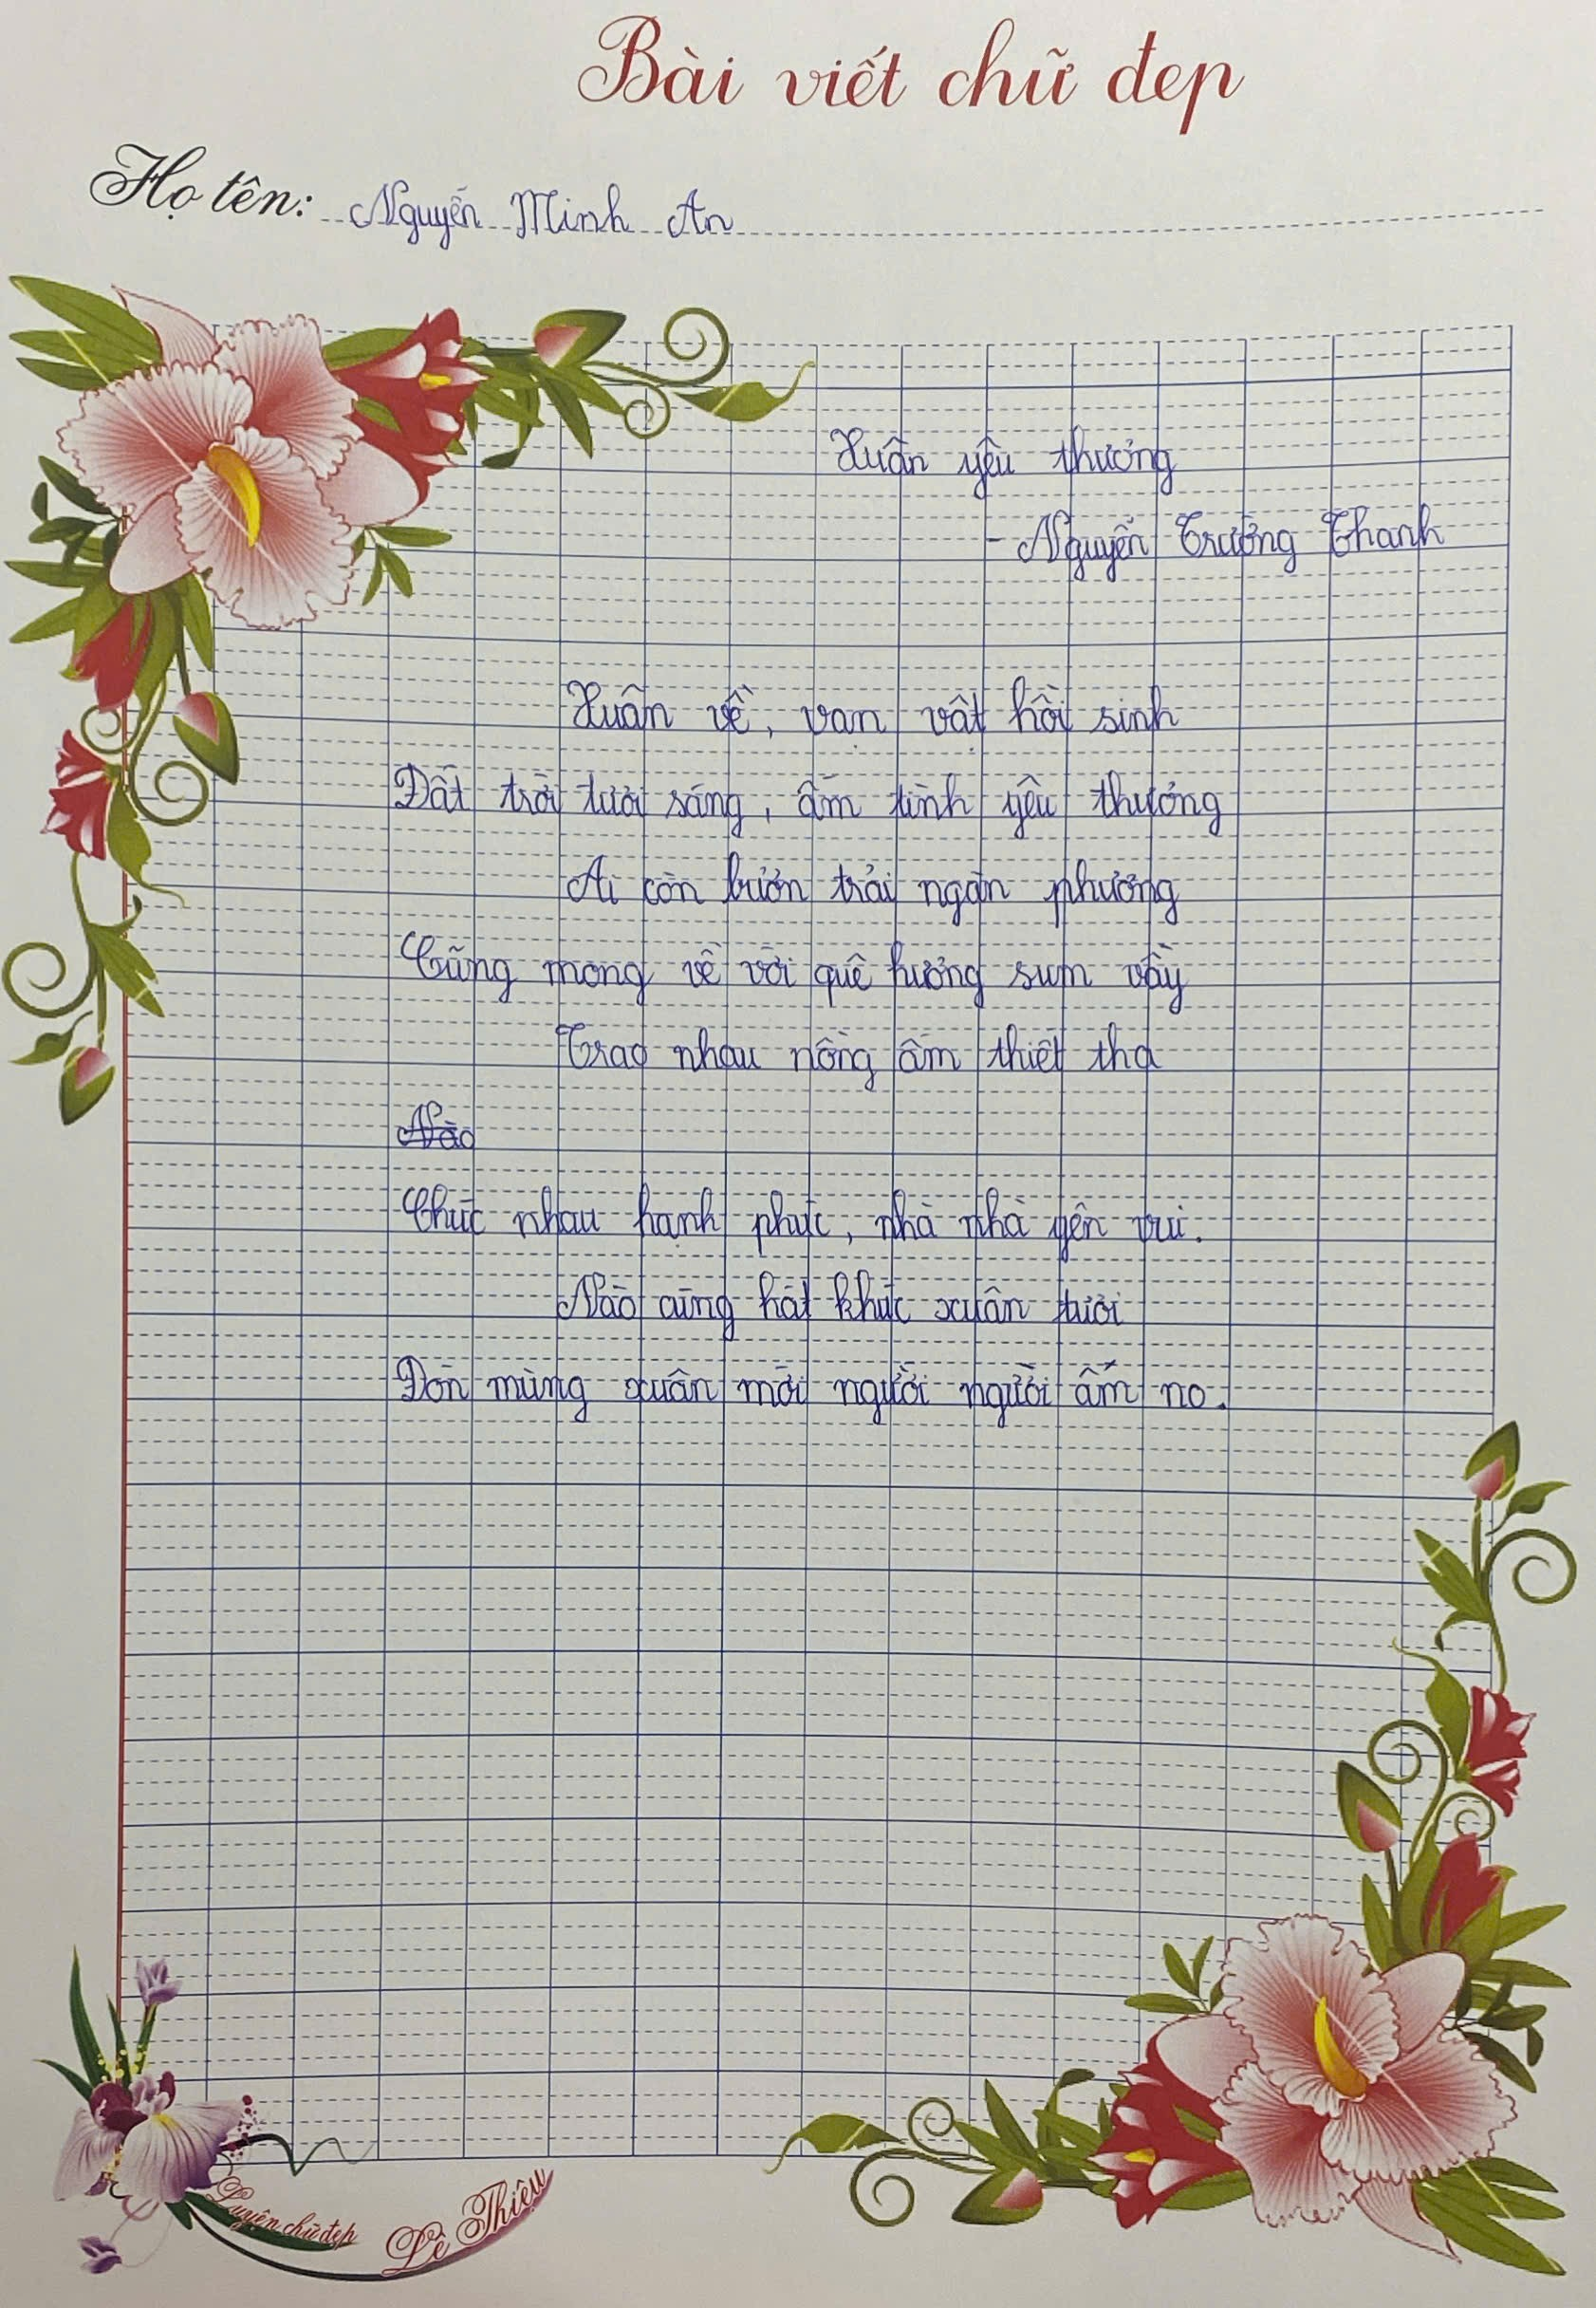 Bài viết chữ đẹp
Họ tên: Nguyễn Minh An
Xuân yêu thương
- Nguyễn Trường Thanh
Xuân về, vạn vật hồi sinh
Đất trời tươi sáng, ấm tình yêu thương
Ai còn bươn trải ngàn phương
Cũng mong về với quê hương sum vầy
Trao nhau nồng ấm thiết tha
Nào
Chúc nhau hạnh phúc, nhà nhà yên vui.
Nào cùng hát khúc xuân tươi
Đón mừng xuân mới người người ấm no.
Luyện chữ đẹp Lê Thiệu